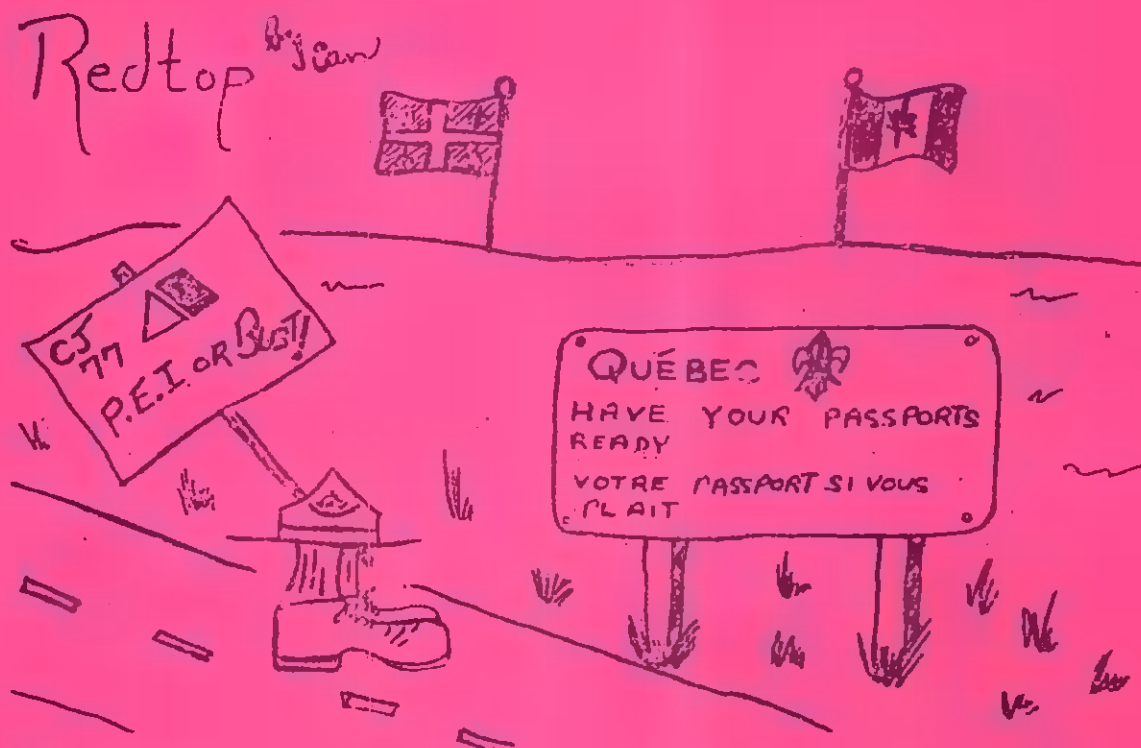 Redtop By Ian
CJ
77
P.E.I. OR BUST!
QUÉBEC
HAVE YOUR PASSPORTS
READY
VOTRE PASSPORT SI VOUS
PLAIT